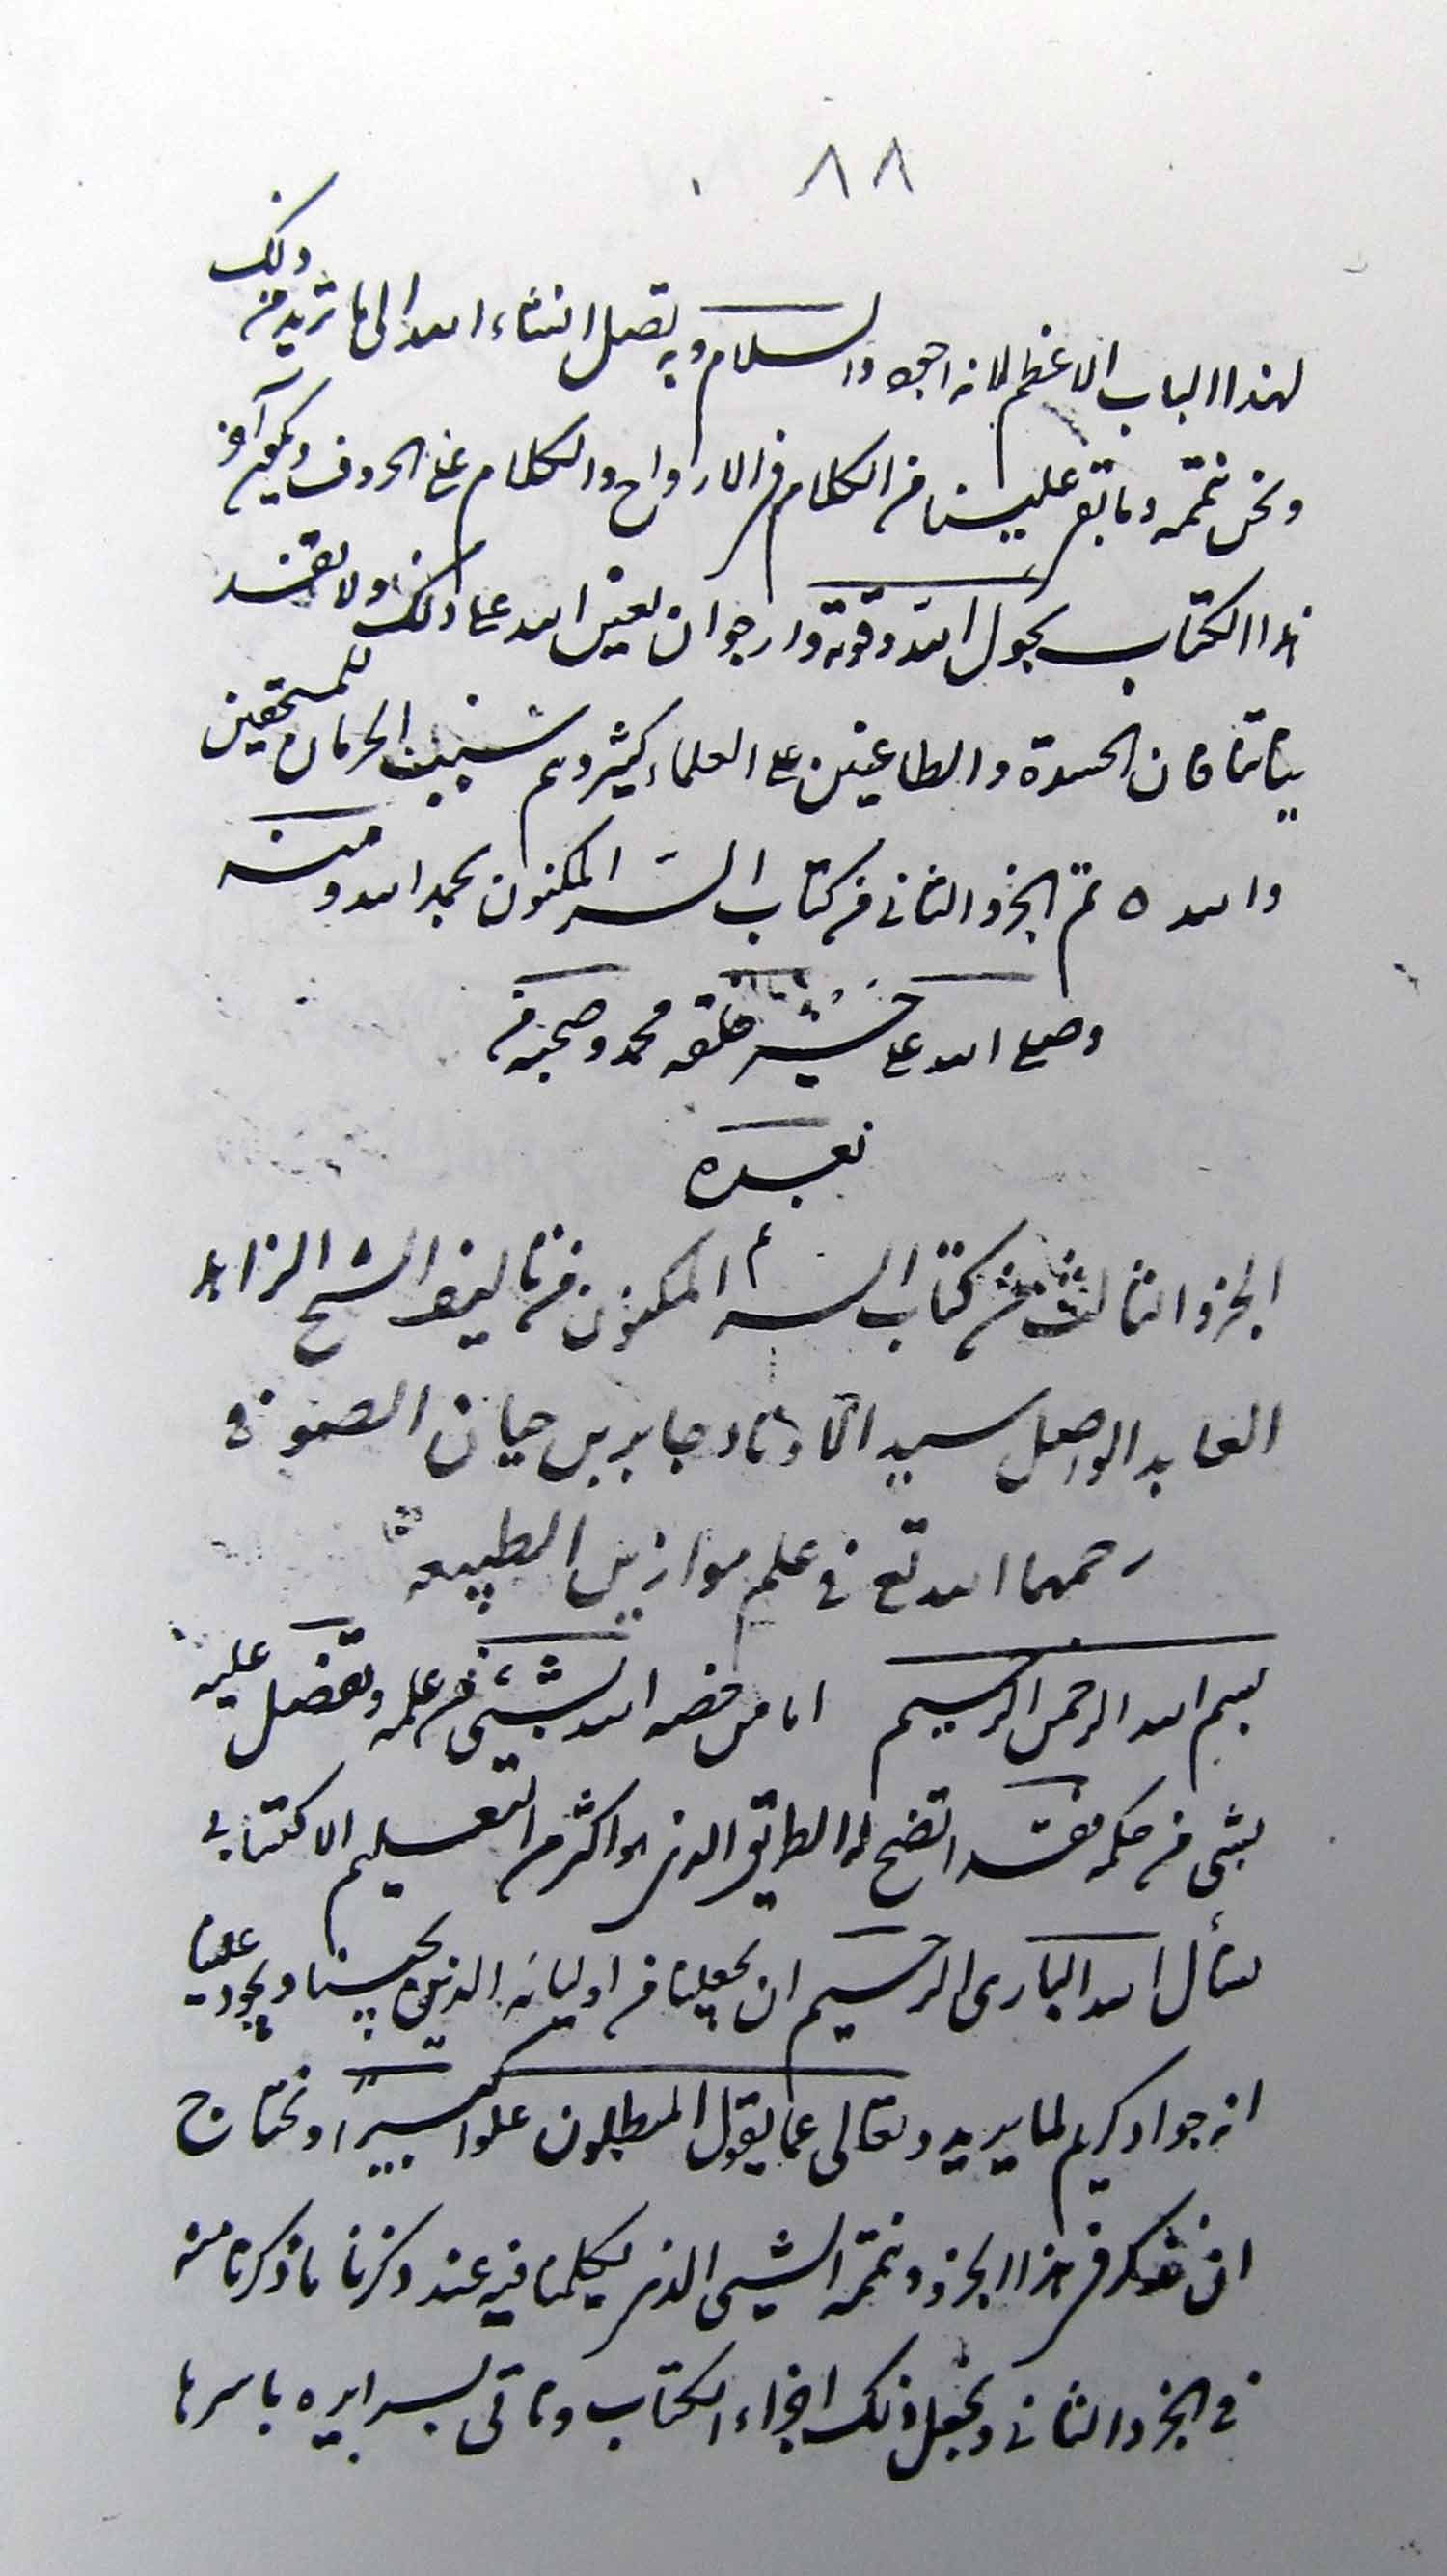 ٨٨
لهذا الباب الاعظم لانه اجود والسلام وبه تصل انشاء الله الى ما تريد من ذلك
ونحن نتممه وما بقى علينا من الكلام فى الارواح والكلام على الحروف ويكون آخر
هذا الكتاب بحول الله وقوته وارجو ان يعين الله على ذلك ولا
فان الحسدة والطاغين على العلماء كثير وهم سبب الحرمان للمستحقين
والله ه تم الجزو الثانى من كتاب السّر المكنون بحمد الله ومنه
وصلى الله على خير خلقه محمد وصحبه من
بعده
الجزو الثالث من كتاب السر المكنون من تاليف الشيخ الزاهد
العابد الواصل سيد الاوتاد جابر بن حيان الصوفى
رحمهما الله تع فى علم موازين الطبيعه
بسم الله الرحمن الرحيم اما من خصه الله بشيئ من علمه وتفضل عليه
بشى من حكمه فقد اتضح له الطريق الذى هو اكثر من التعليم الاكتسابى
نسأل الله البارى الرحيم ان يجعلنا من اوليائه الذين يحبنا ويجود علينا
انه جواد كريم لما يريد وتعالى عما يقول المبطلون علوا كبيرًا ونحتاج
ان نذكر فى هذا الجزو ونتمة الشيى الذى تكلمنا فيه عند ذكرنا ما ذكرنا منه
فى الجزو الثانى ونجعل ذلك اجزاء الكتاب وناتى بسرايره باسرها